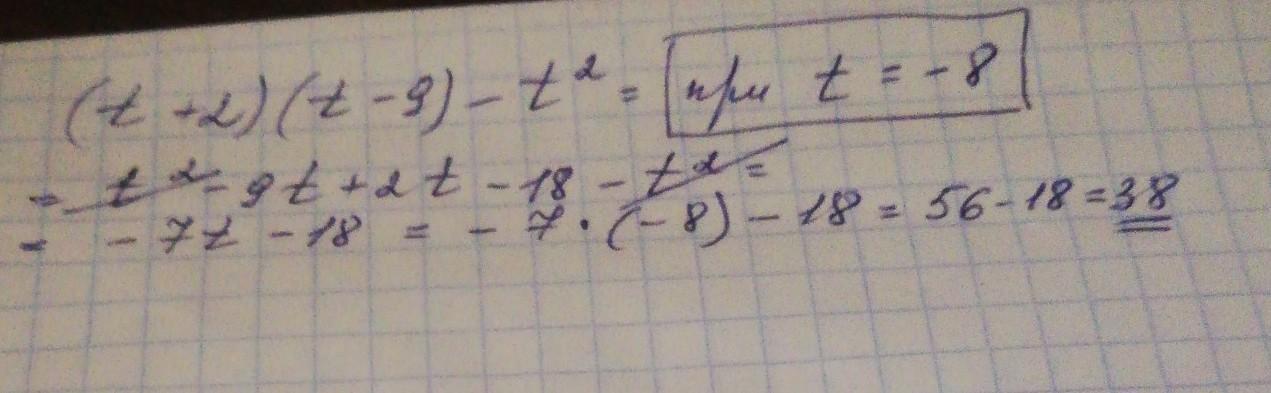 (t + 2)(t - 9) - t² = при t = -8
= t² - 9t + 2t - 18 - t² =
= - 7t - 18 = - 7 · (-8) - 18 = 56 - 18 = 38